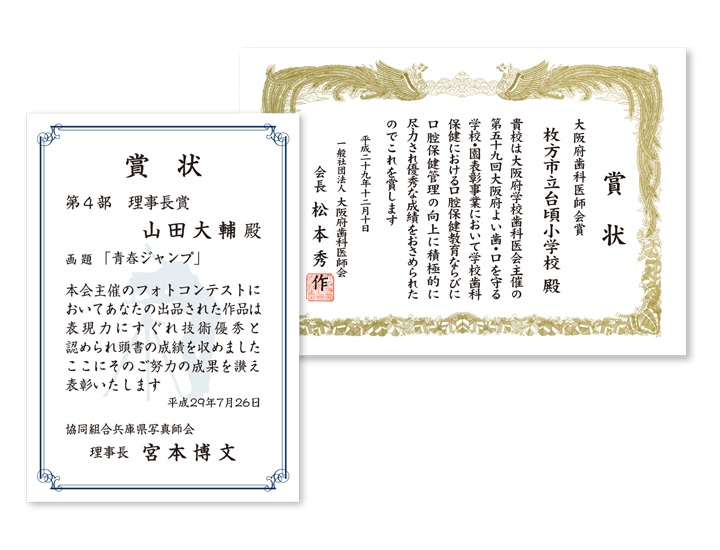 賞状
第4部 理事長賞
山田大輔殿
画題 「青春ジャンプ」
本会主催のフォトコンテストに
おいてあなたの出品された作品は
表現力にすぐれ技術優秀と
認められ頭書の成績を収めました
ここにそのご努力の成果を讃え
表彰いたします
平成29年7月26日
協同組合兵庫県写真師会
理事長 宮本博文
賞状
大阪府歯科医師会賞
枚方市立台頃小学校 殿
貴校は大阪府学校歯科医会主催の
第五十九回大阪府よい歯・口を守る
学校・園表彰事業において学校歯科
保健における口腔保健教育ならびに
口腔保健管理の向上に積極的に
尽力され優秀な成績をおさめられた
のでこれを賞します
平成二十九年十二月十日
一般社団法人 大阪府歯科医師会
会長 松本秀作